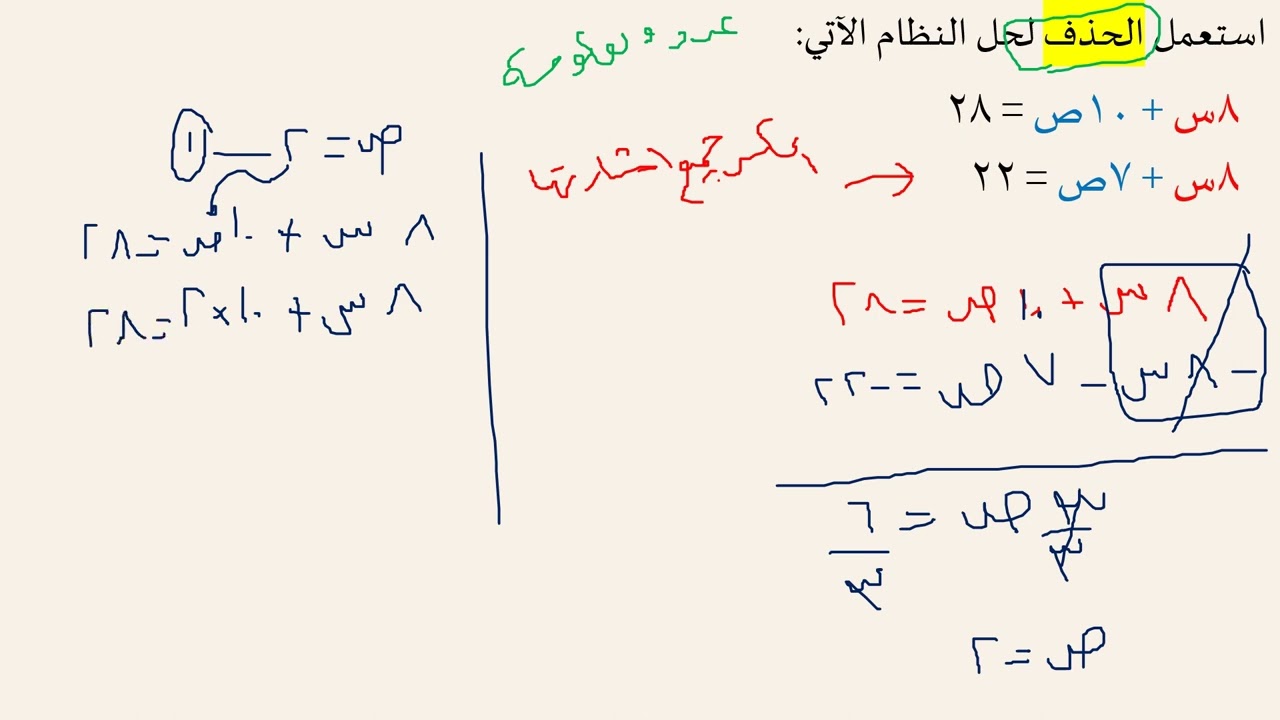 استعمل الحذف لحل النظام الآتي:
٨س + ١٠ص = ٢٨
٨س + ٧ص = ٢٢
اعكس جميع اشاراتها
٨ س + ١٠ ص = ٢٨
- ٨ س - ٧ ص = -٢٢
٣ ص = ٦
٣ ٣
ص = ٢
ص = ٢ ١
٨ س + ١٠ص = ٢٨
٨ س + ١٠×٢ = ٢٨